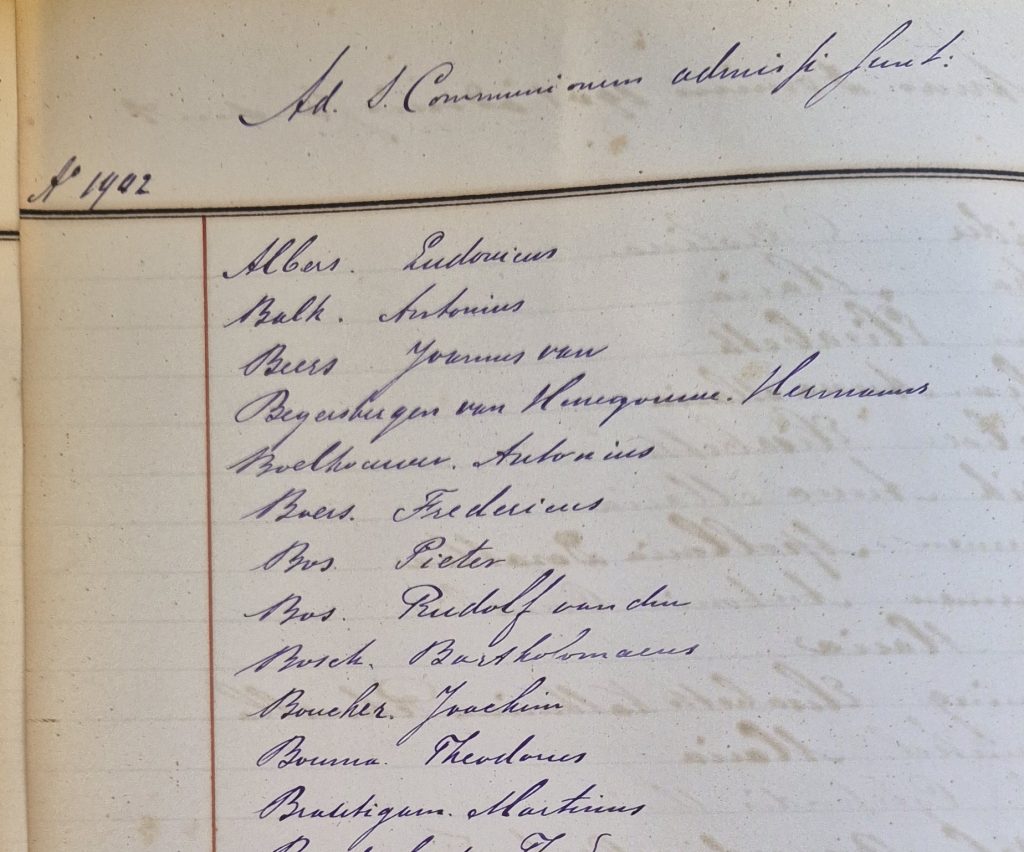 Ad. S. Communionem admissi sunt:
Ao 1902
Albers. Ludovicus
Balk. Antonius
Beers Joannes van
Beyersbergen van Henegouwe. Hermanus
Boelhouwer. Antonius
Boers. Fredericus
Bos. Pieter
Bos. Rudolf van den
Bosch. Bartholomaeus
Boucher. Joachim
Bouma. Theodorus
Brautigam. Martinus